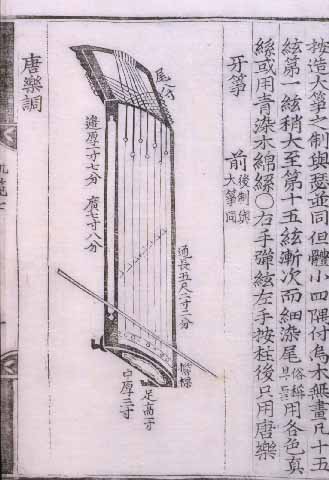 按造大箏之制與瑟並同但體小四隅付偽木無畫凡十五
絃第一絃稍大至第十五絃漸次而細染尾俗稱부들用各色真
絲或用青染木綿絲○右手彈絃左手按柱後只用唐樂
牙箏
前
後制與
大箏同
尾八分
通長五尺二寸二分
邊厚一寸七分
廣七寸八分
足高一寸
中厚三寸
唐樂調